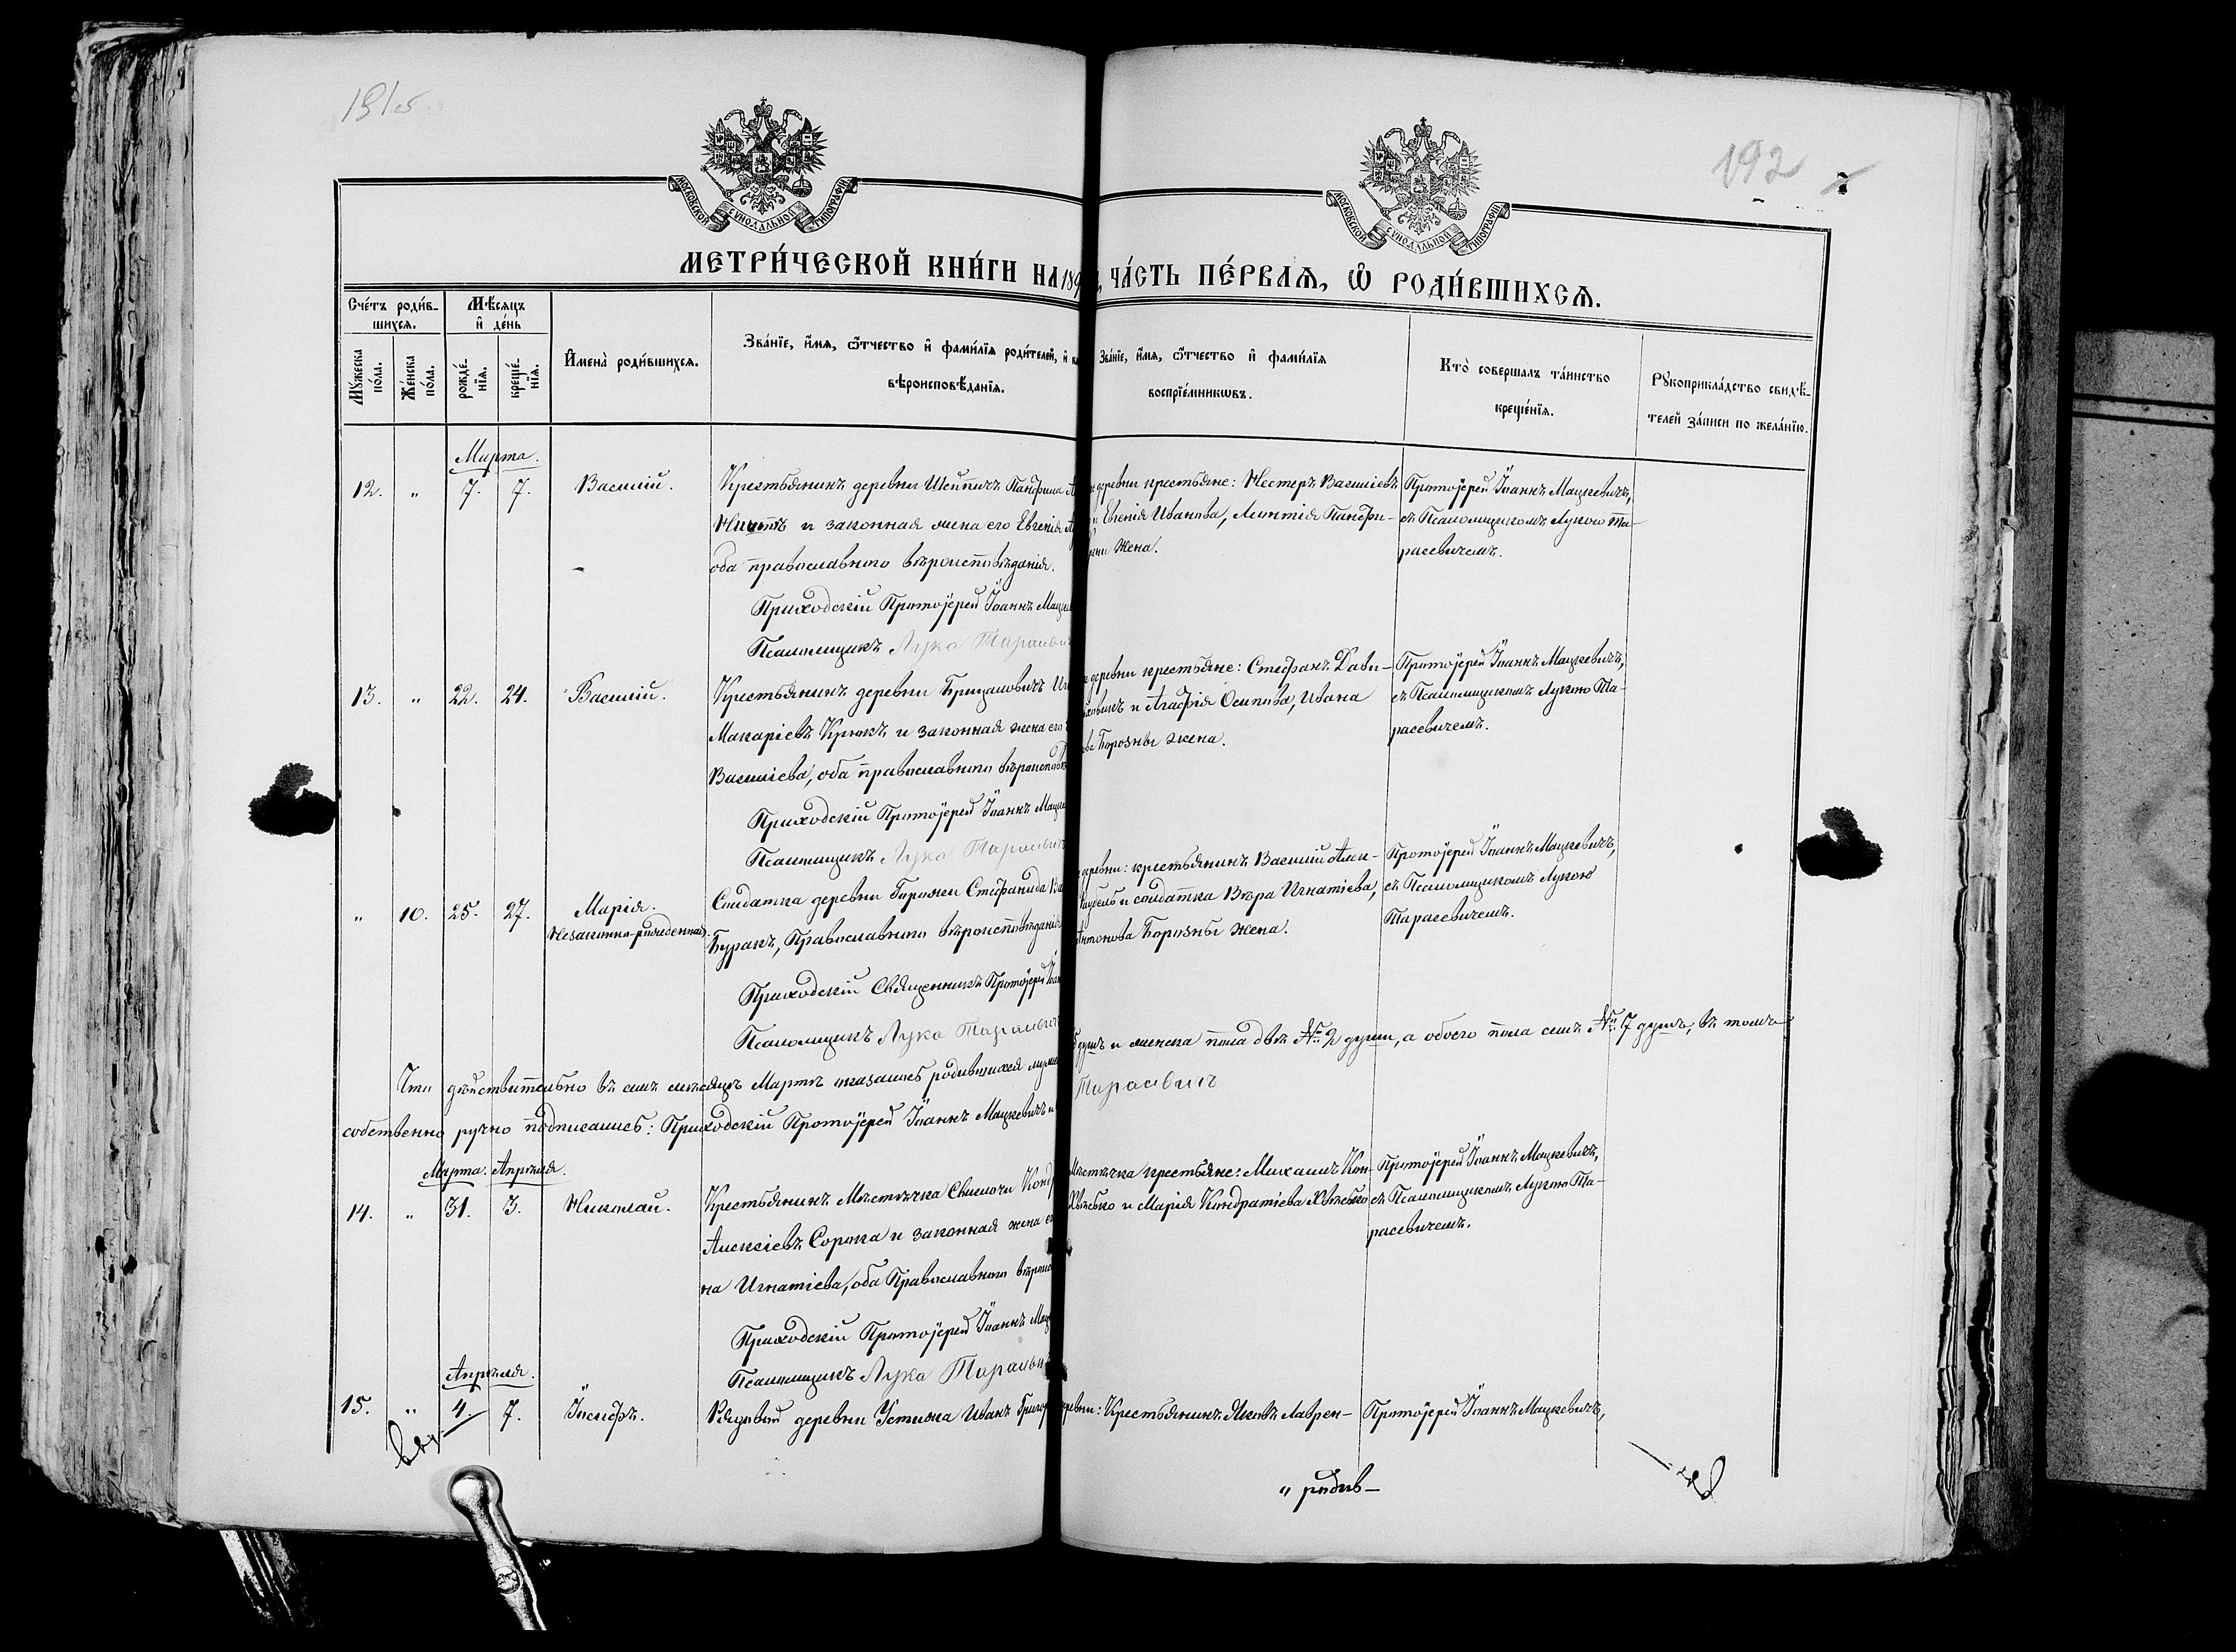 191об
192
МОСКОВСКОЙ СѴНОДАЛЬНОЙ ТИПОГРАФІИ
МОСКОВСКОЙ СѴНОДАЛЬНОЙ ТИПОГРАФІИ
МЕТРИ́ЧЕСКОЙ КНИ́ГИ НА 189
ЧА́СТЬ ПЕ́РВАѦ, Ѽ РОДИ́ВШИХСѦ.
Сче́тъ роди́в-
шихсѧ.
Мѣ́сяцъ
и҆ де́нь
Мꙋ́жеска
по́ла.
Же́нска
по́ла.
рожде́-
нїѧ.
креще́-
нїѧ.
И҆мена̀ роди́вшихсѧ.
Зва́нїе, и҆́мѧ, ѻ҆́тчество и҆ фами́лїѧ роди́телей, и҆
вѣроисповѣ́данїѧ.
Зва́нїе, и҆́мѧ, ѻ҆́тчество и҆ фами́лїѧ
воспрїе́мникѡвъ.
Кто̀ соверша́лъ та́инство
креще́нїѧ.
Рꙋкоприкла́дство свидѣ́-
телей за́писи по жела́нїю.
Марта.
12. „ 7. 7. Василій.
Крестьянинъ деревни Шейпичъ Панфила
и законная жена его Евгенія
оба православнаго вѣроисповѣданія.
Приходскій Протоіерей Іоаннъ
Псаломщикъ Лука Тарасевичъ
деревни крестьяне: Нестеръ Василіевъ
Евгенія Иванова, Панфи-
жена.
Протоіерей Іоаннъ Мацкевичъ,
съ Псаломщикомъ Лукою Та-
расевичемъ.
13. „ 22. 24. Василій.
Крестьянинъ деревни
Макаріевъ Крюкъ и законная жена его
Василіева, оба православнаго
Приходскій Протоіерей Іоаннъ
Псаломщикъ Лука Тарасевичъ
деревни крестьяне: Стефанъ Дави-
и Агафія Осипова, Ивана
Борозны жена.
Протоіерей Іоаннъ Мацкевичъ,
съ Псаломщикомъ Лукою Та-
расевичемъ.
„ 10. 25. 27. Марія.
Незаконно-рожденная.
Солдатка деревни Стефанида
Буракъ, Православнаго вѣроисповѣданія
Приходскій Священникъ Протоіерей
Псаломщикъ Лука Тарасевичъ
деревни: крестьянинъ Василій Алек-
и солдатка Вѣра Игнатіева,
Антонова Борозны жена.
Протоіерей Іоаннъ Мацкевичъ,
съ Псаломщикомъ Лукою
Тарасевичемъ.
Что дѣйствительно въ семъ мѣсяцѣ Мартѣ оказалось родившихся
душъ и женска пола двѣ № 2 души, а обоего пола семь № 7 душъ, въ томъ
собственно ручно подписались: Приходскій Протоіерей Іоаннъ Мацкевичъ и
Тарасевичъ
Марта. Апрѣля.
14. „ 31. 3. Николай.
Крестьянинъ Мѣстечка Свислочи
Алексіевъ Сорока и законная жена
на Игнатіева, оба Православнаго
Приходскій Протоіерей Іоаннъ
Псаломщикъ Лука Тарасевичъ
Мѣстечка крестьяне: Михаилъ Кон-
и Марія Кондратіева
Протоіерей Іоаннъ Мацкевичъ,
съ Псаломщикомъ Лукою Та-
расевичемъ.
Апрѣля.
15. „ 4. 7. Іосифъ.
Рядовой деревни Иванъ
Крестьянинъ Яковъ Лаврен-
Протоіерей Іоаннъ Мацкевичъ,
„ родив-